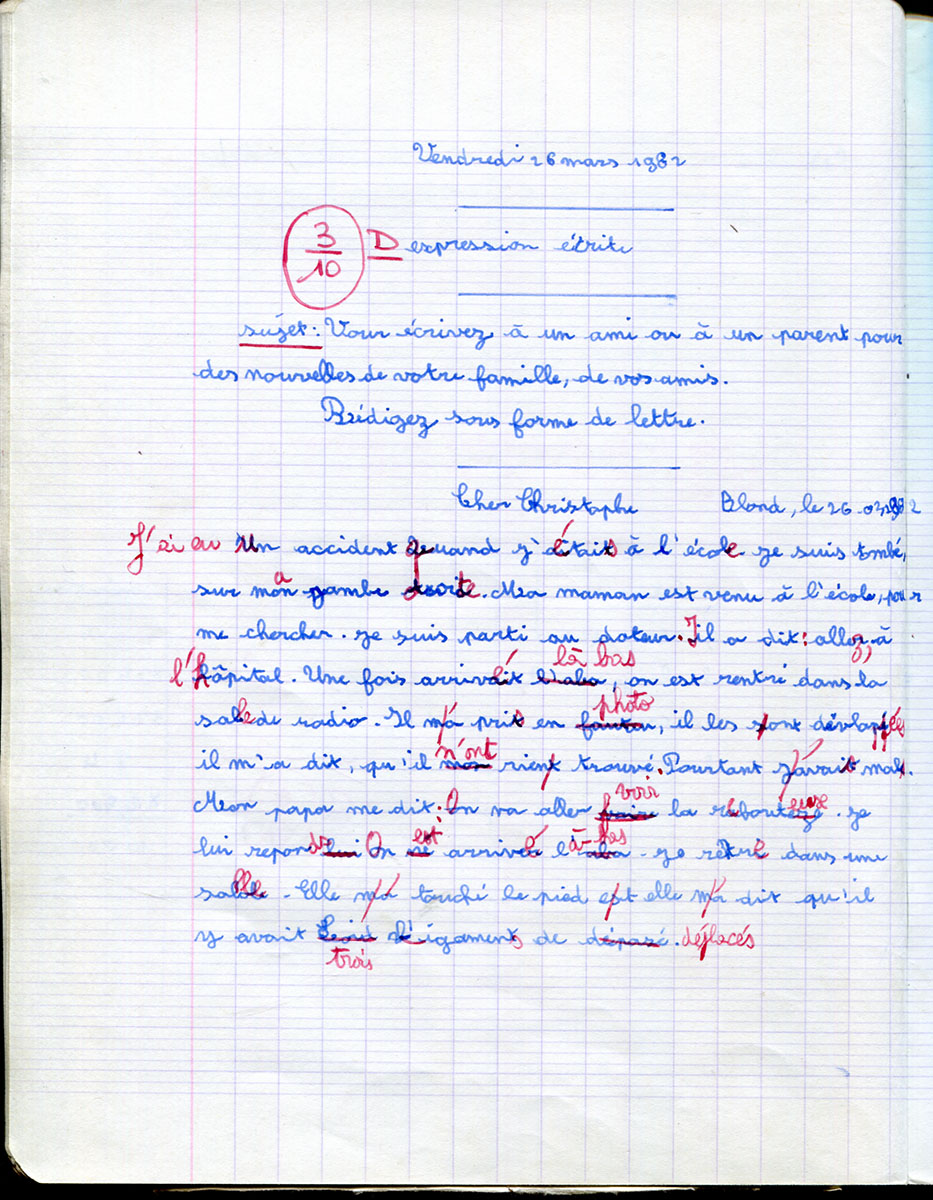 Vendredi 26 mars 1982
3/10 D expression étrite
sujet: Vour écrivez à un ami ou à un parent pour
des nouvelles de votre famille, de vos amis.
Rédigez sous forme de lettre.
Cher Christophe Blond, le 26.03.1982
J'ai eu Un accident quand j'étais à l'école je suis tombé,
sur ma gambe droite. Ma maman est venu à l'école, pour
me chercher. je suis parti au doteur. Il a dit: allez, à
l'hôpital. Une fois arrivé là bas, on est rentré dans la
salle de radio. Il m'a pris en photo, il les ont dévlopées
il m'a dit, qu'il n'ont rien trouvé. Pourtant j'avait mal.
Mon papa me dit: On va aller voir la rebouteuse. je
lui repond On est arrivé là-bas. je rentre dans une
salle. Elle m'a touché le pied et elle m'a dit qu'il
y avait trois ligaments de déplacés